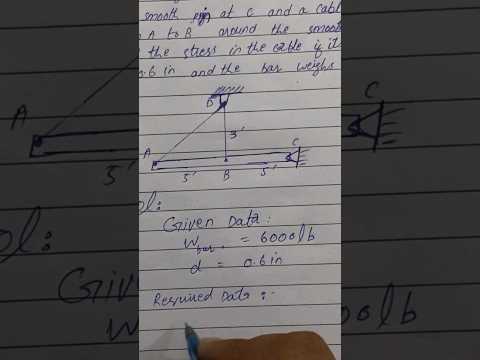 smooth pin at C and a cabl
A to B around the smoot
the stress in the cable if it
0.6 in and the bar weighs
B
3'
A
C
5' B 5'
Given Data:
W bar = 6000 lb
d = 0.6 in
Required Data:-
A
5'
C
ol:
Given
W
00 lb